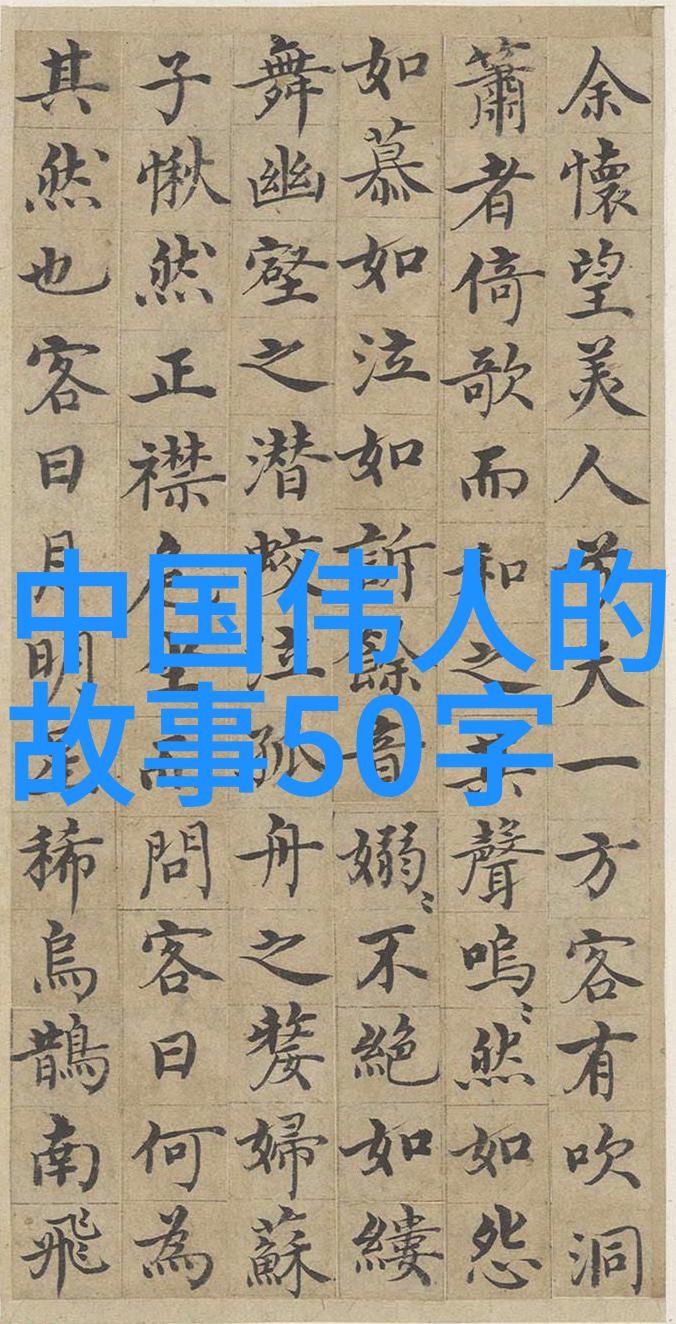 余懷望美人兮天一方客有吹洞
簫者倚歌而和之其聲嗚〻然如怨
如慕如泣如訴餘音嫋〻不絕如縷
舞幽壑之潜蛟泣孤舟之嫠婦蘇
子愀然正襟危坐而問客曰何為
其然也客曰月明星稀烏鵲南飛
中国伟人的
故事50字